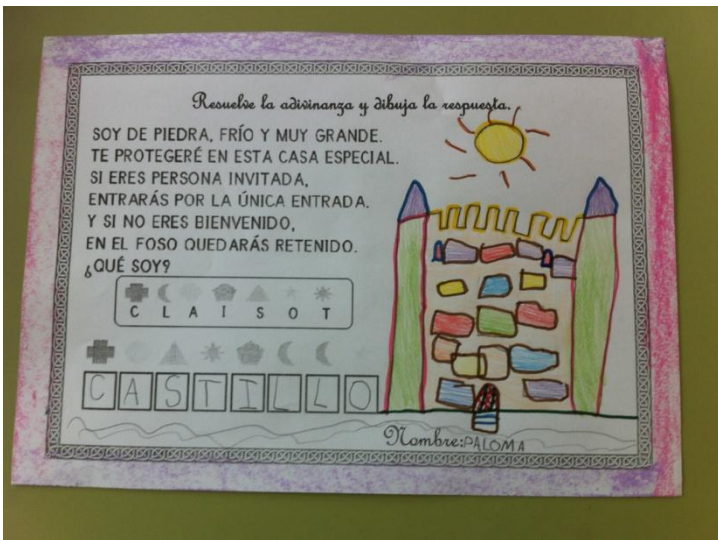 Resuelve la adivinanza y dibuja la respuesta.
SOY DE PIEDRA, FRÍO Y MUY GRANDE.
TE PROTEGERÉ EN ESTA CASA ESPECIAL.
SI ERES PERSONA INVITADA,
ENTRARÁS POR LA ÚNICA ENTRADA.
Y SI NO ERES BIENVENIDO,
EN EL FOSO QUEDARÁS RETENIDO.
¿QUÉ SOY?
C L A I S O T
CASTILLO
Nombre: PALOMA